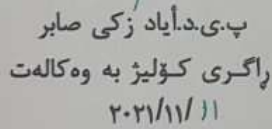 پ.ی.د.أیاد زکی صابر
ڕاگری کۆلیژ بە وەکالەت
٢٠٢١/١١/١١